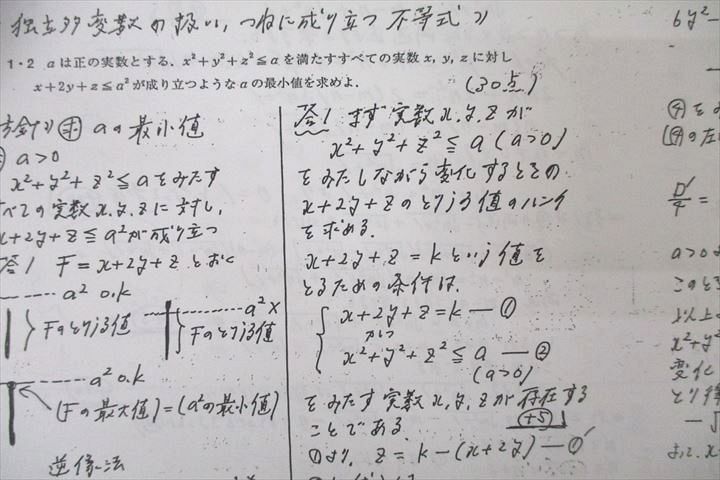 独立多変数の扱い, つねに成り立つ不等式
1・2 aは正の実数とする、x²+y²+z²≦aを満たすすべての実数 x, y, z に対し
x+2y+z≦a²が成り立つようなaの最小値を求めよ.
(30点)
方針) 求 aの最小値
a>0
x²+y²+z²≦aをみたす
べての実数x,y,zに対し,
x+2y+z≦a²が成り立つ
答1 F=x+2y+zとおく
a² o.k
Fのとりうる値
a² ×
Fのとりうる値
a² o.k
(Fの最大値)=(a²の最小値)
逆像法
答1 まず実数x,y,zが
x²+y²+z²≦a (a>0)
をみたしながら変化するときの
x+2y+zのとりうる値のハンイ
を求める.
x+2y+z=kという値を
とるための条件は.
x+2y+z=k ー①
かつ
x²+y²+z²≦a ー②
(a>0)
をみたす実数x,y,zが存在する
ことである.
+5
①より, z=k-(x+2y) ー①′
6y²-
④をみ
④の左
D′/4 =
a>0よ
このとき
以上よ
x²+y²
変化
とり得